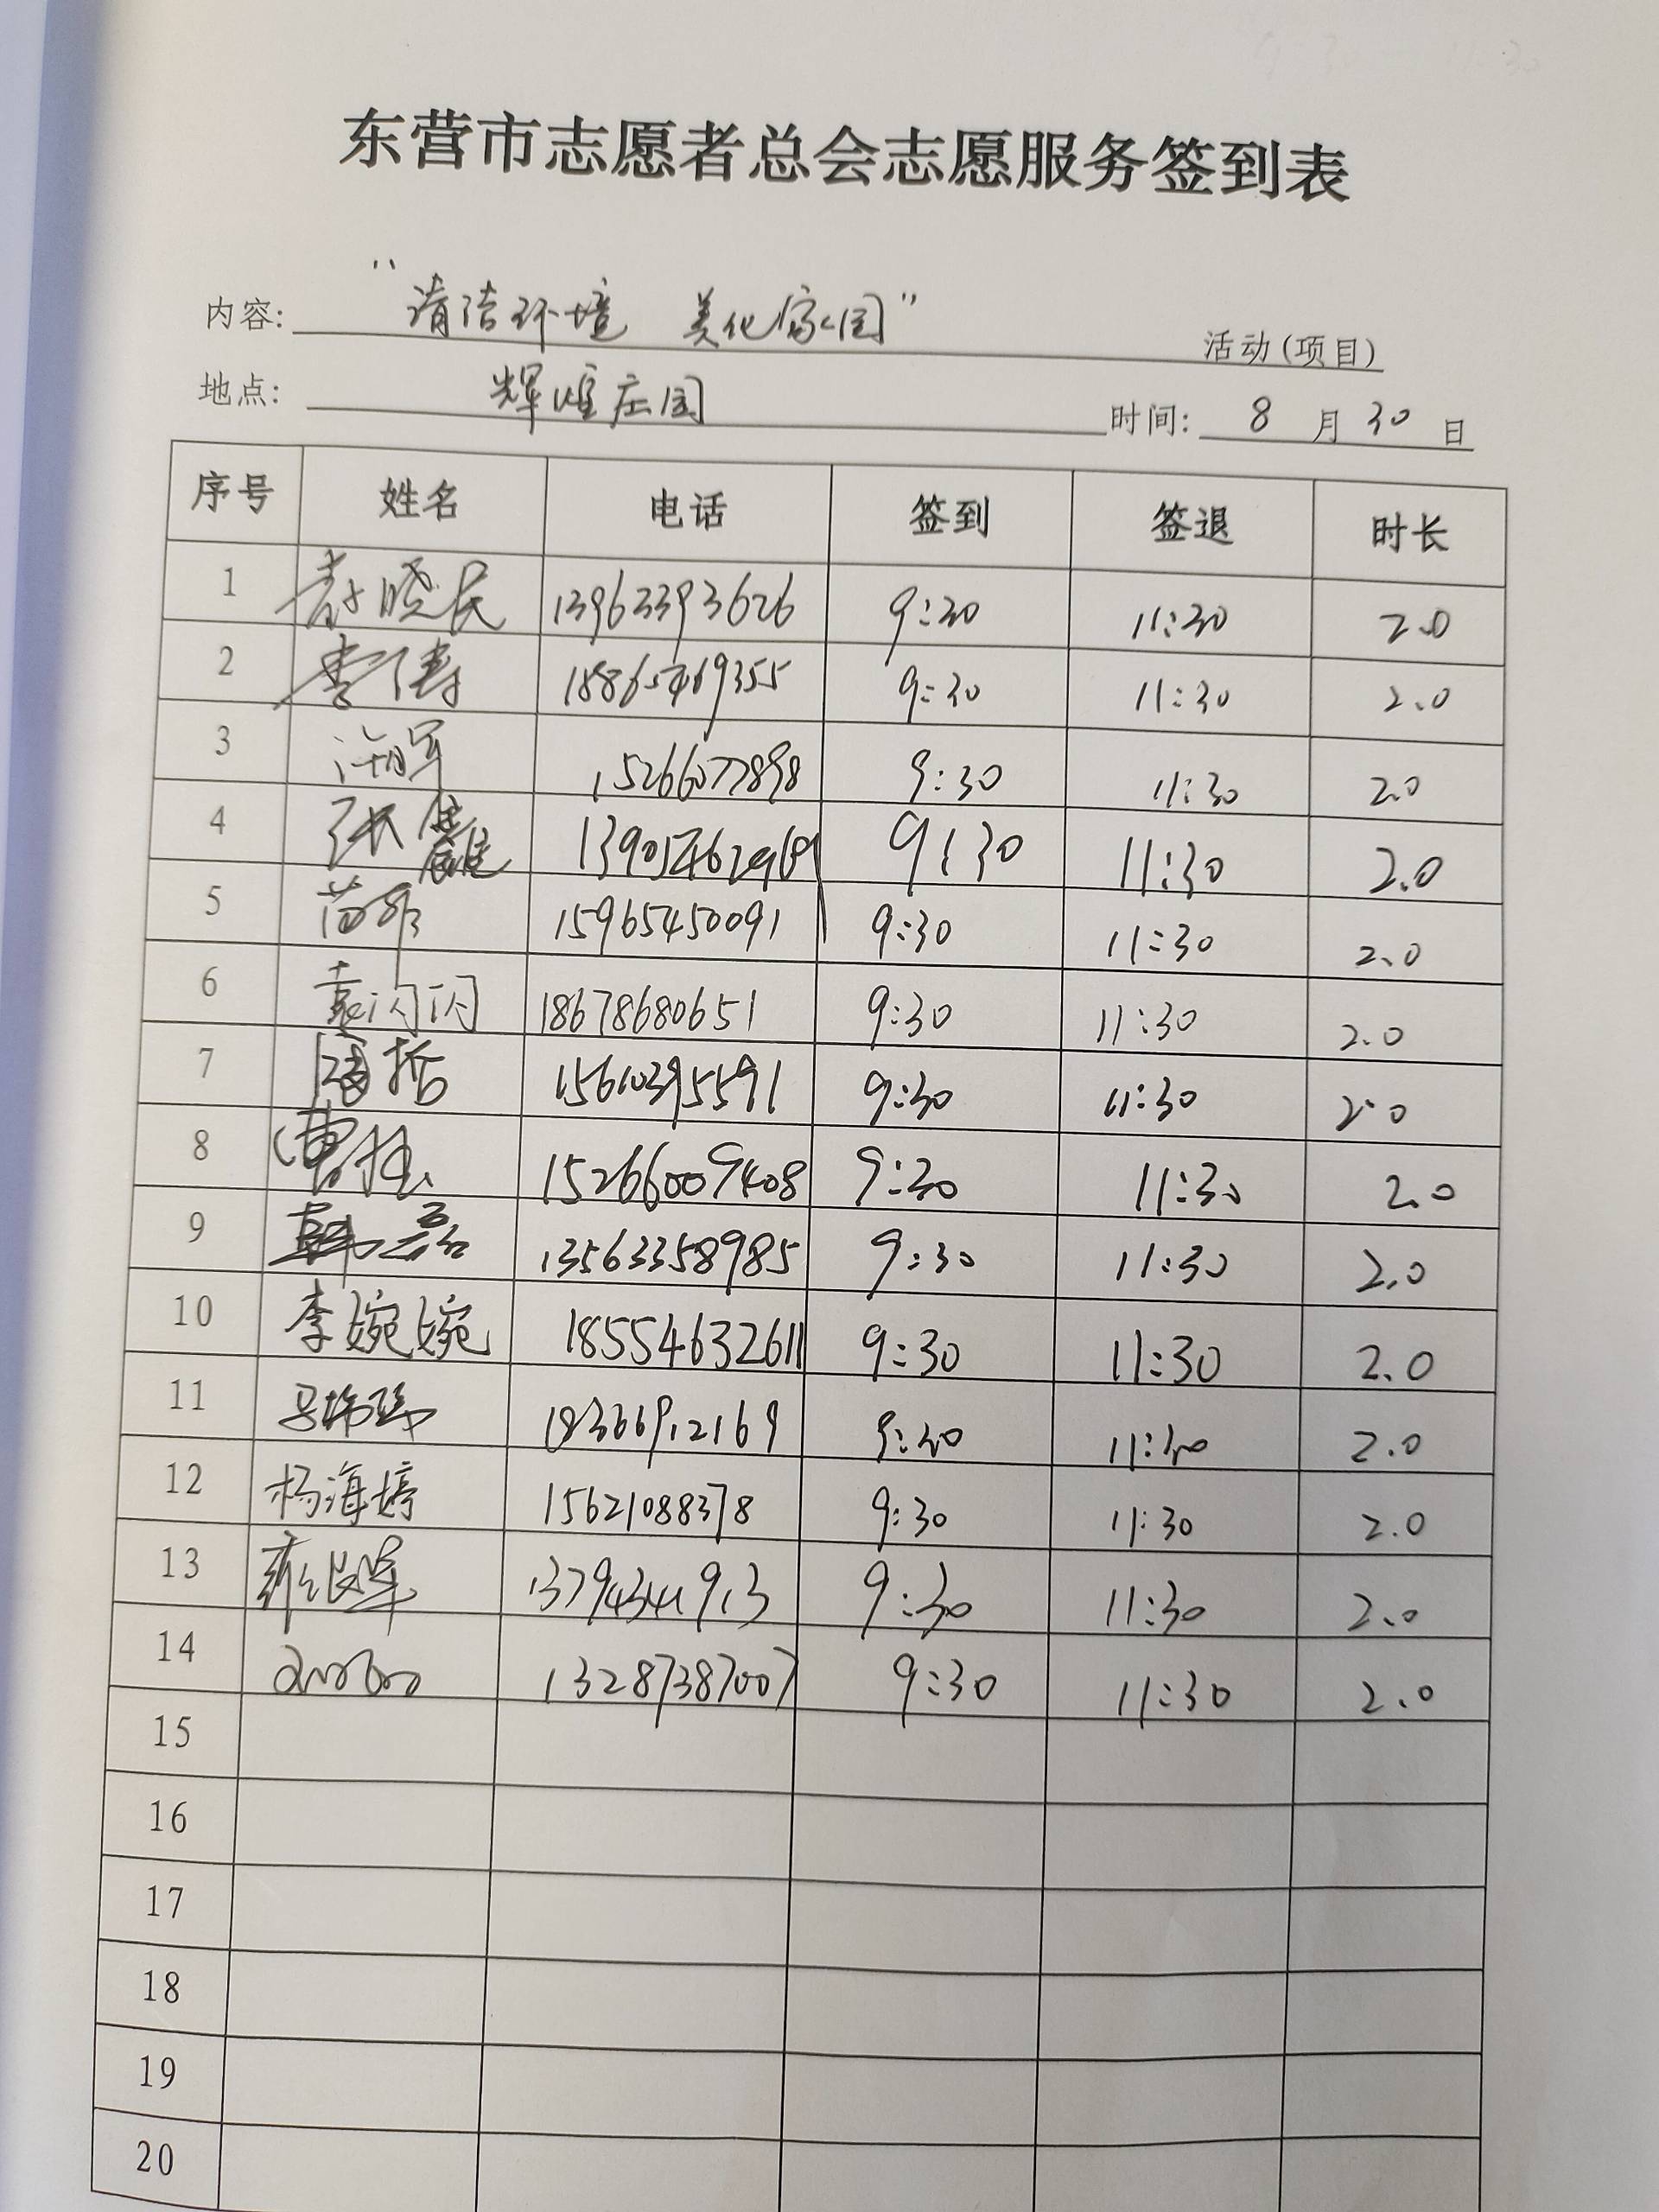 东营市志愿者总会志愿服务签到表
内容: "清洁环境 美化家园" 活动(项目)
地点: 辉煌庄园 时间: 8 月 30 日
序号 姓名 电话 签到 签退 时长
1 晓民 13963393626 9:30 11:30 2.0
2 李涛 18865469355 9:30 11:30 2.0
3 15266077898 9:30 11:30 2.0
4 张 9:30 11:30 2.0
5 15965450091 9:30 11:30 2.0
6 袁闪闪 18678680651 9:30 11:30 2.0
7 15610395591 9:30 11:30 2.0
8 曹 15266009408 9:30 11:30 2.0
9 韩磊 13563358985 9:30 11:30 2.0
10 李婉婉 18554632611 9:30 11:30 2.0
11 18366912169 9:30 11:30 2.0
12 杨海婷 15621088378 9:30 11:30 2.0
13 9:30 11:30 2.0
14 13287387007 9:30 11:30 2.0
15
16
17
18
19
20